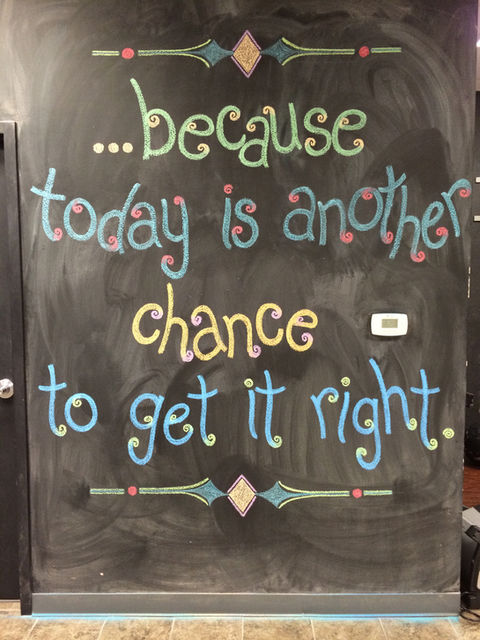 ...because
today is another
chance
to get it right.